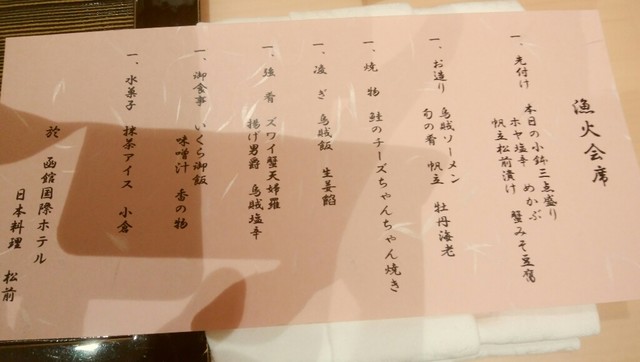 漁火会席
一、先付け　本日の小鉢三点盛り　めかぶ
ホヤ塩辛　蟹みそ豆腐
帆立松前漬け
一、お造り　烏賊ソーメン　牡丹海老
旬の肴　帆立
一、焼　物　鮭のチーズちゃんちゃん焼き
一、凌　ぎ　烏賊飯　生姜餡
一、強　肴　ズワイ蟹天婦羅
揚げ男爵　烏賊塩辛
一、御食事　いくら御飯
味噌汁　香の物
一、水菓子　抹茶アイス　小倉
於　函館国際ホテル
日本料理　松前